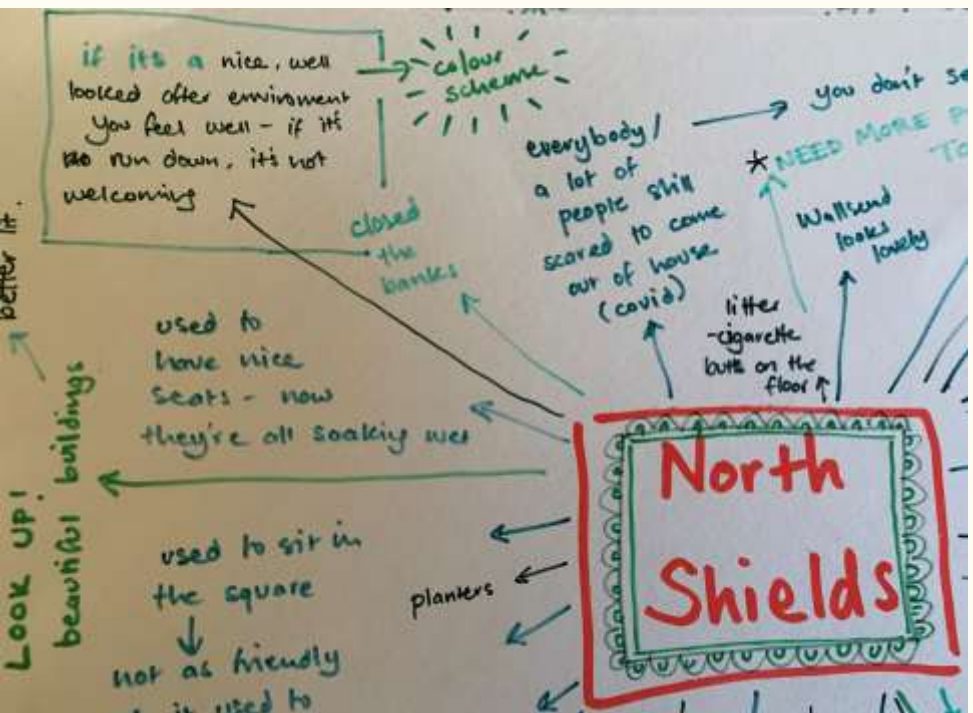 if its a nice, well
looked after enviroment
You feel well - if its
run down, it's not
welcoming
colour
scheme
closed
the
banks
everybody /
a lot of
people still
scared to come
out of house
(covid)
you don't se
* NEED MORE P
TO
Wallsend
looks
lovely
litter
-cigarette
butts on the
floor
better lit.
used to
have nice
seats - now
they're all soaking wet
LOOK UP!
beautiful buildings
used to sit in
the square
not as friendly
it used to
planters
North
Shields